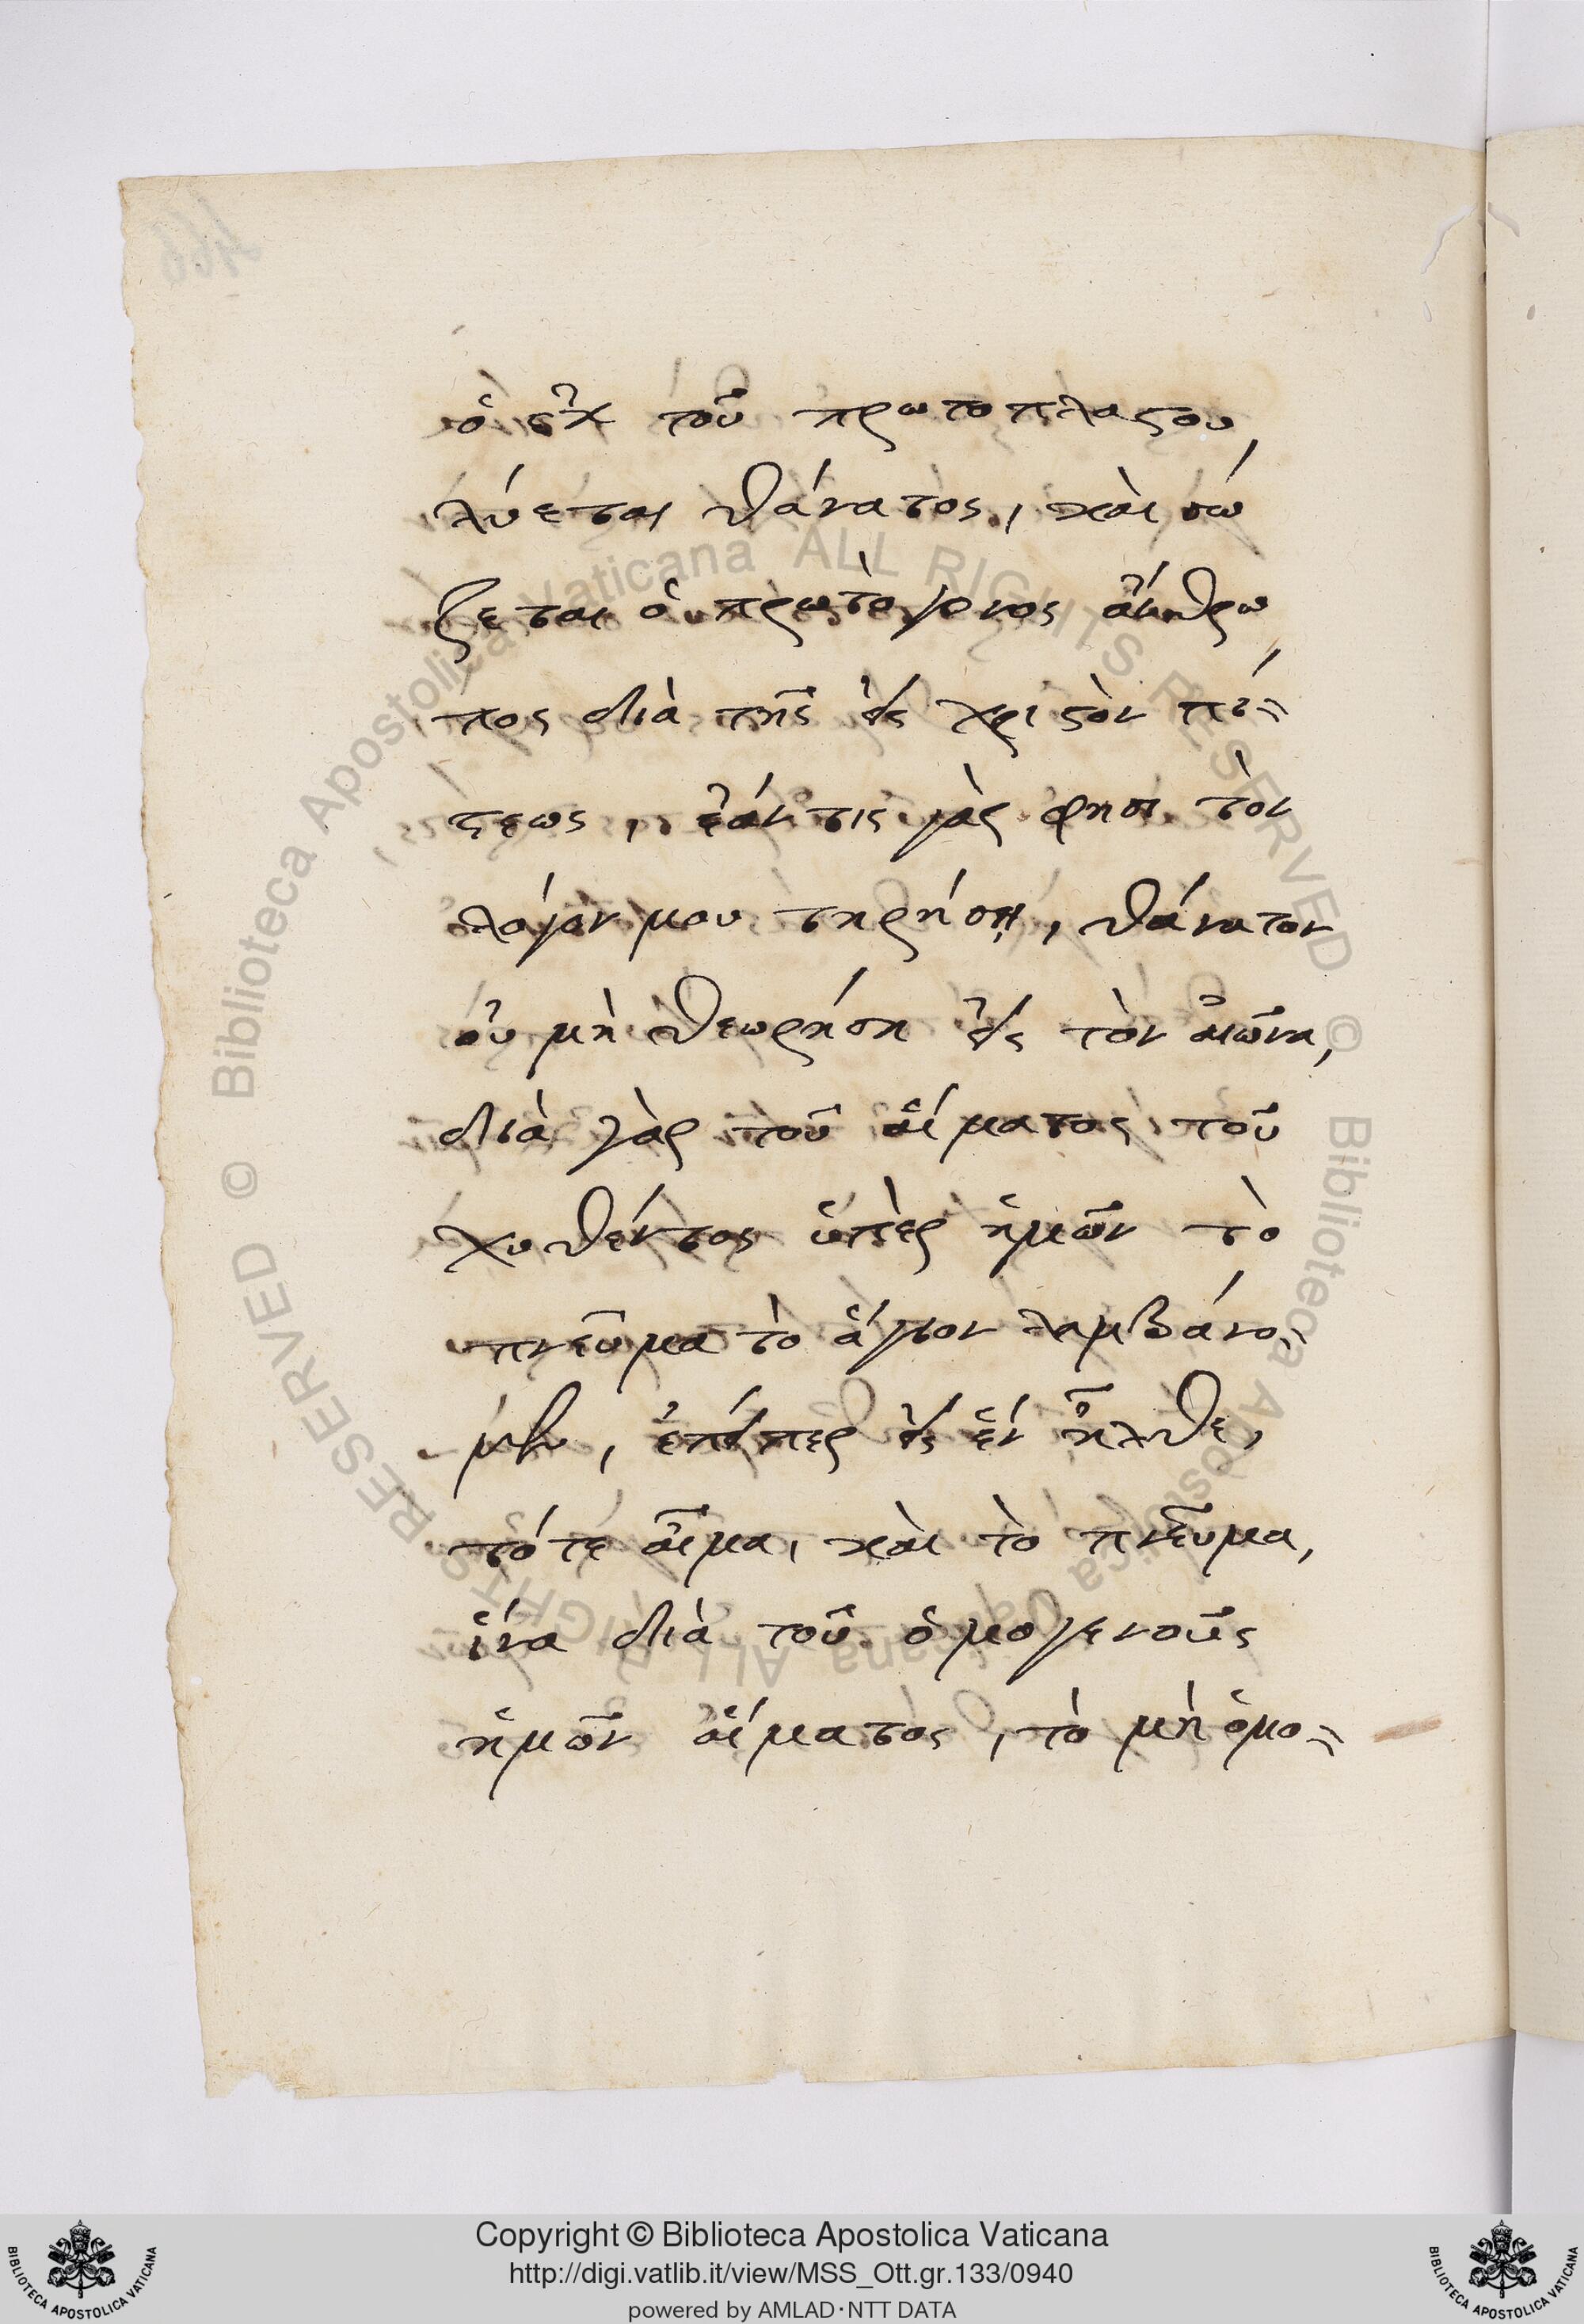 ὁ ἐκ τοῦ πρωτοπλάστου
λύεται θάνατος, καὶ σώ
ζεται ὁ πρωτόγονος ἄνθρω
πος διὰ τῆς εἰς χριστὸν πί-
στεως, ἐάν τις γὰρ φησι τὸν
λόγον μου τηρήσῃ, θάνατον
οὐ μὴ θεωρήση εἰς τὸν αἰῶνα,
διὰ γὰρ τοῦ αἵματος τοῦ
χυθέντος ὑπὲρ ἡμῶν τὸ
πνεῦμα τὸ ἅγιον λαμβάνο-
μεν, ἐπείπερ εἰς ἓν ἦλθε,
τότε αἷμα, καὶ τὸ πνεῦμα,
ἵνα διὰ τοῦ ὁμογενοῦς
ἡμῶν αἵματος, τὸ μὴ ὁμο-
Biblioteca Apostolica Vaticana ALL RIGHTS RESERVED ©
Biblioteca Apostolica Vaticana ALL RIGHTS RESERVED ©
Copyright © Biblioteca Apostolica Vaticana
http://digi.vatlib.it/view/MSS_Ott.gr.133/0940
powered by AMLAD·NTT DATA
BIBLIOTECA APOSTOLICA VATICANA
BIBLIOTECA APOSTOLICA VATICANA